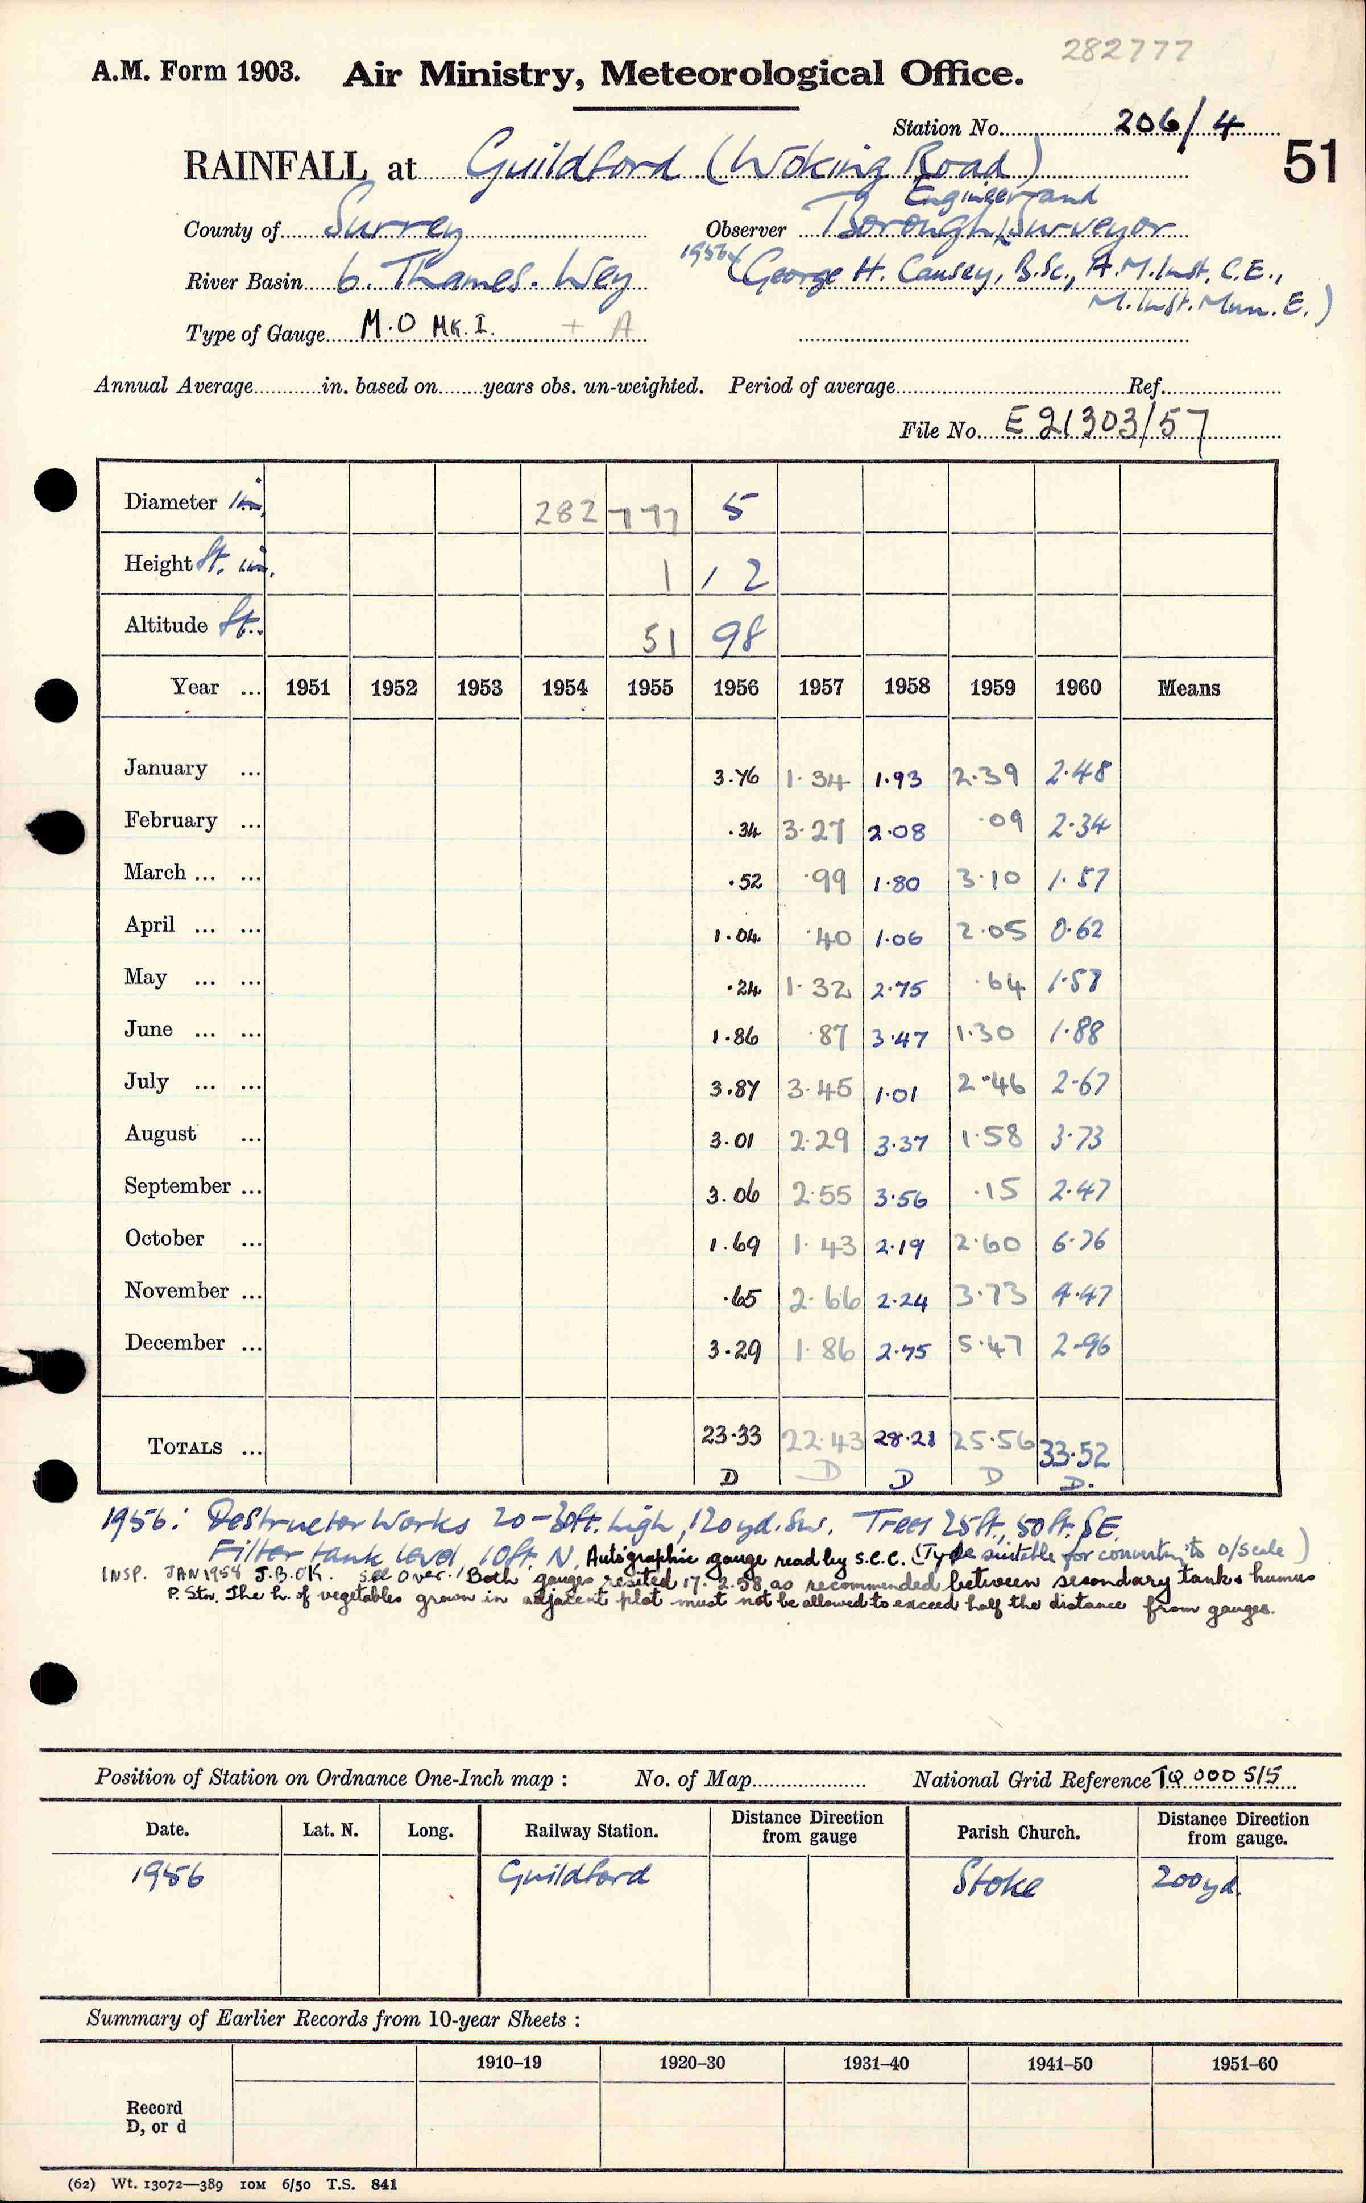 282777
A.M. Form 1903. Air Ministry, Meteorological Office.
Station No. 206/4
51
RAINFALL at Guildford (Woking Road)
Engineer and
County of Surrey Observer Borough Surveyor
River Basin 6. Thames. Wey 1956 (George H. Causey, B.Sc., A.M.Inst.C.E.,
M.Inst.Mun.E.)
Type of Gauge M.O Mk.I. + A
Annual Average in. based on years obs. un-weighted. Period of average Ref.
File No. E 21303/57
Diameter in. 282 777 5
Height ft. in. 1 1 2
Altitude ft. 51 98
Year ... 1951 1952 1953 1954 1955 1956 1957 1958 1959 1960 Means
January ... 3.76 1.34 1.93 2.39 2.48
February ... .34 3.27 2.08 .09 2.34
March ... ... .52 .99 1.80 3.10 1.57
April ... ... 1.04 .40 1.06 2.05 0.62
May ... ... .24 1.32 2.75 .64 1.57
June ... ... 1.86 .87 3.47 1.30 1.88
July ... ... 3.87 3.45 1.01 2.46 2.67
August ... 3.01 2.29 3.37 1.58 3.73
September ... 3.06 2.55 3.56 .15 2.47
October ... 1.69 1.43 2.19 2.60 6.76
November ... .65 2.66 2.24 3.73 4.47
December ... 3.29 1.86 2.75 5.47 2.96
TOTALS ... 23.33 22.43 28.21 25.56 33.52
D D D D D.
1956: Destructor Works 20-30ft. high, 120yd. SW. Trees 25ft., 50ft. SE.
Filter tank level, 10ft. N. Autographic gauge read by S.C.C. (Type suitable for converting to o/scale)
INSP. JAN 1958 J.B. OK. See Over. Both gauges resited 17.2.58 as recommended between secondary tank & humus
P. Stn. The h. of vegetables grown in adjacent plot must not be allowed to exceed half the distance from gauges.
Position of Station on Ordnance One-Inch map : No. of Map National Grid Reference TQ 000 515
Date. Lat. N. Long. Railway Station. Distance Direction from gauge Parish Church. Distance Direction from gauge.
1956 Guildford Stoke 200yd.
Summary of Earlier Records from 10-year Sheets :
1910–19 1920–30 1931–40 1941–50 1951–60
Record
D, or d
(62) Wt. 13072—389 10M 6/50 T.S. 841